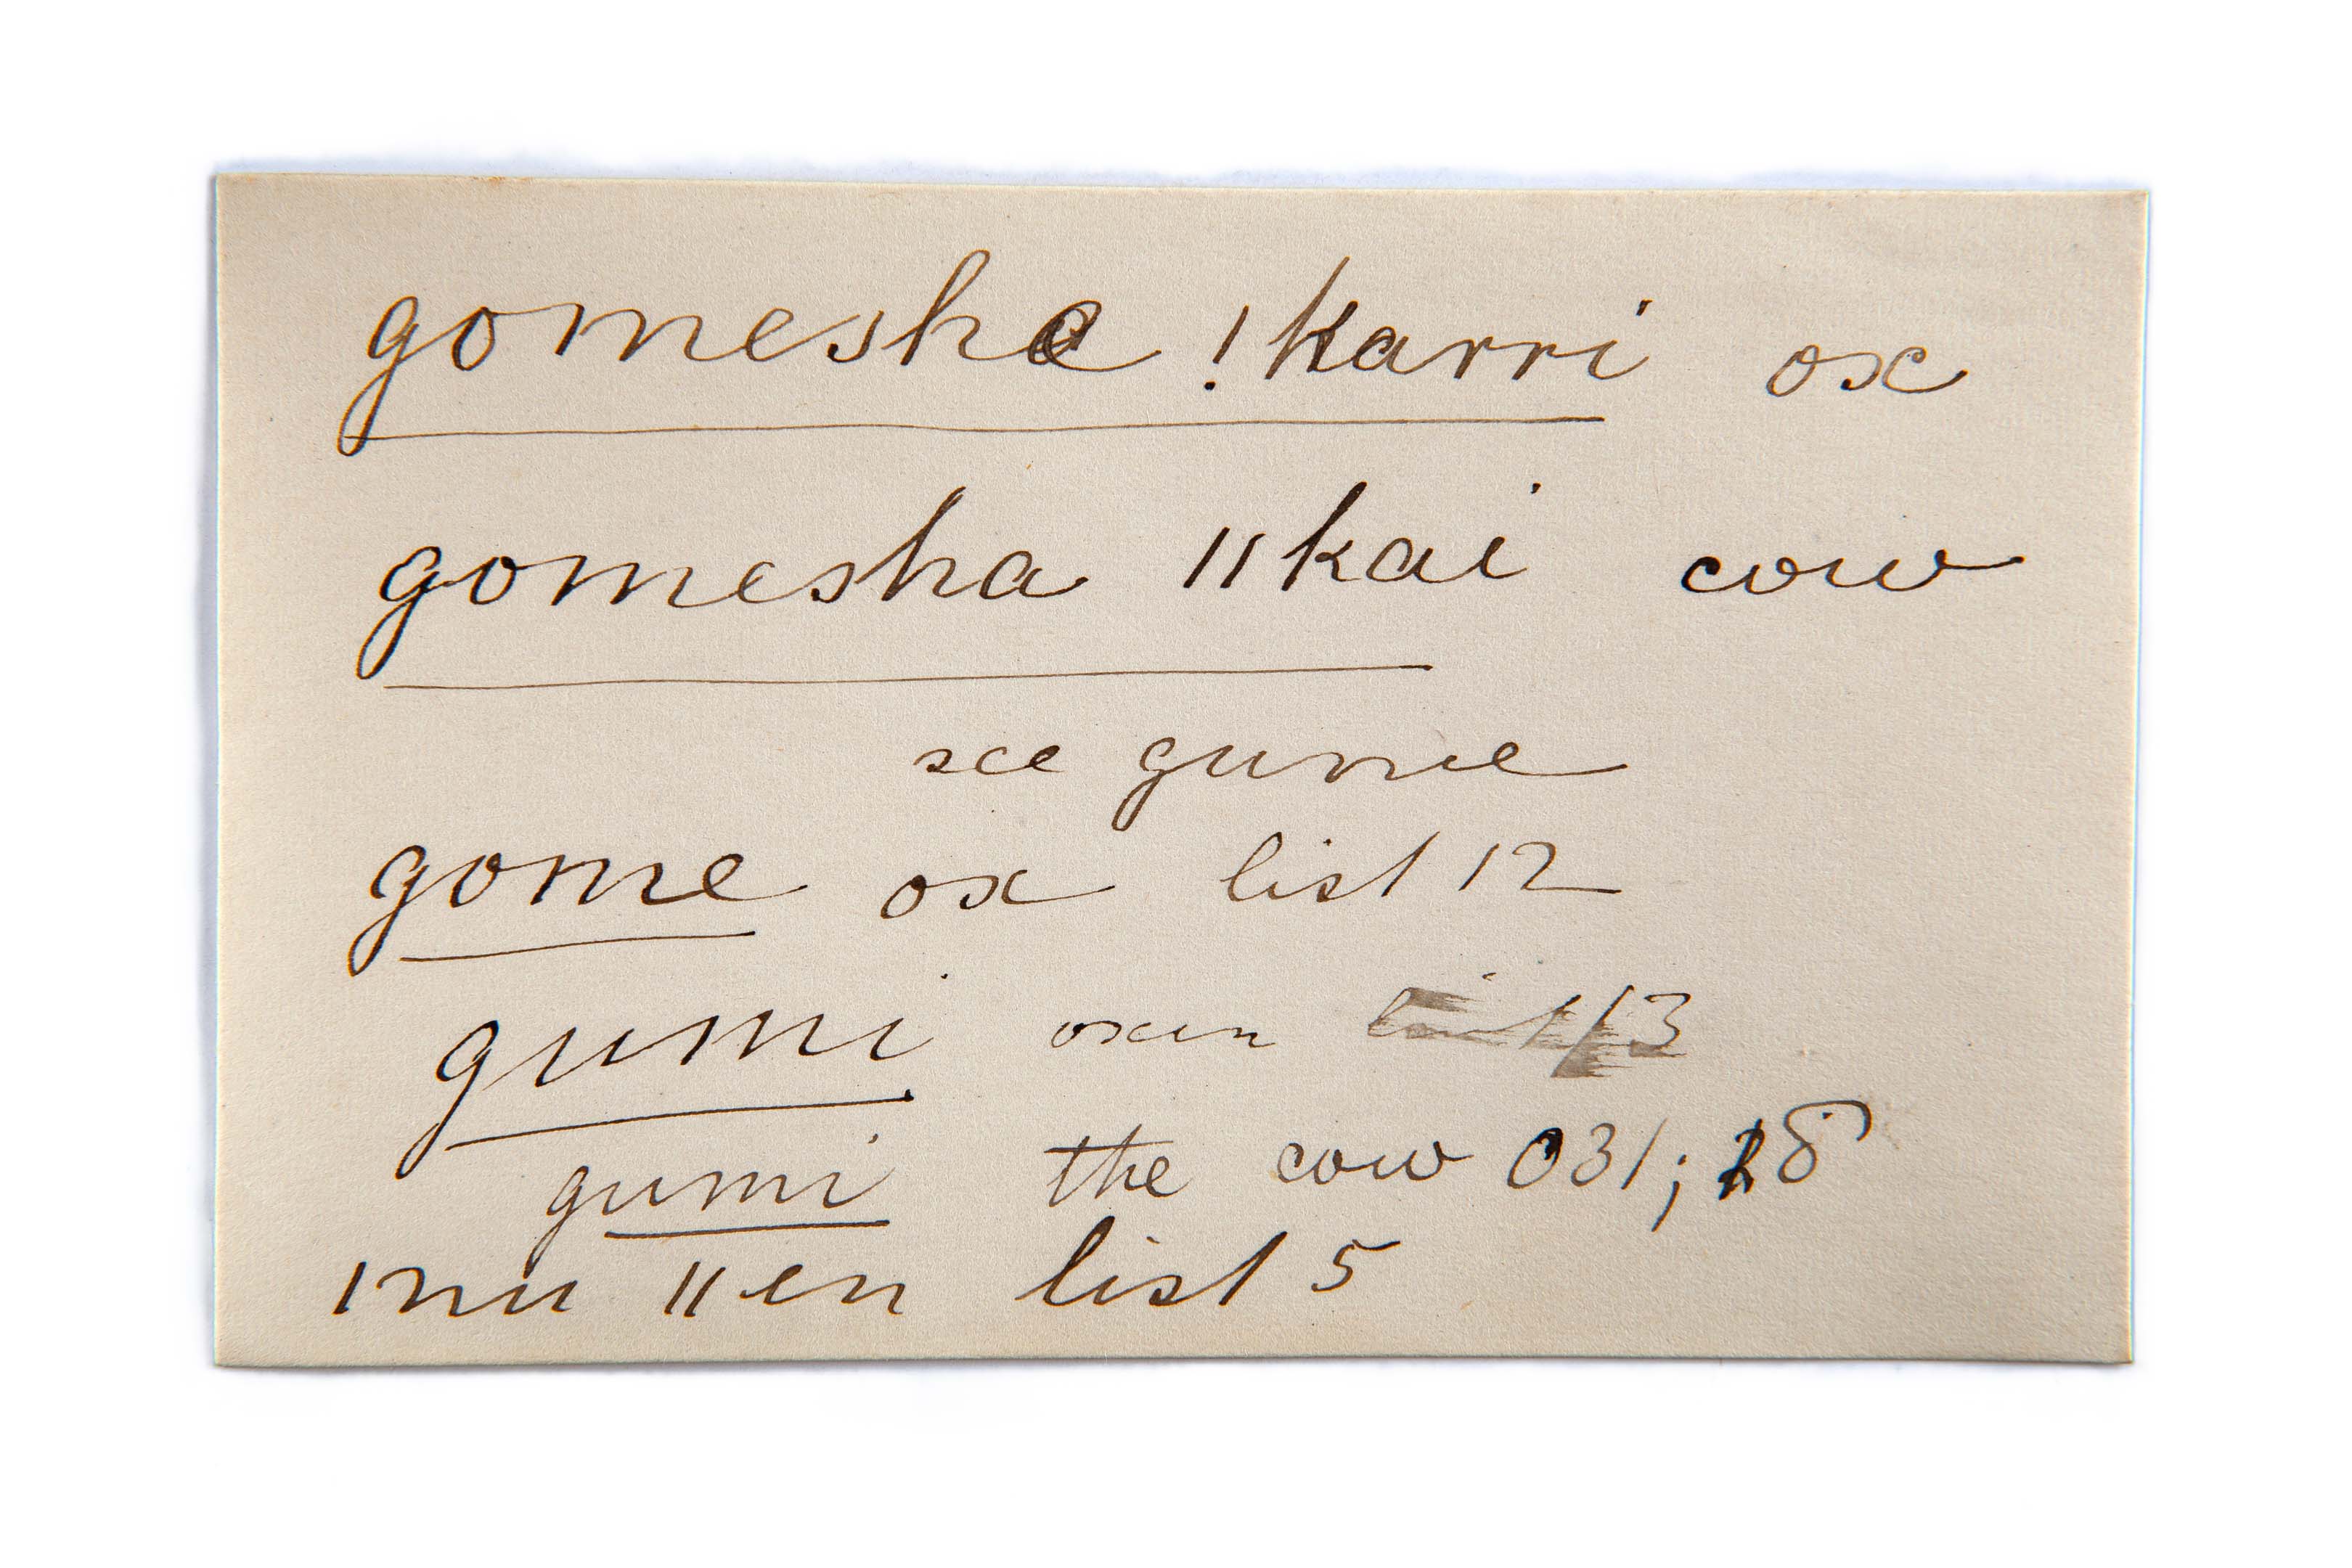 gomesha !karri ox
gomesha ǁkai cow
see gume
gome ox list 12
gumi oxen list 13
gumi the cow 031; 28
ǀnu ǁen list 5